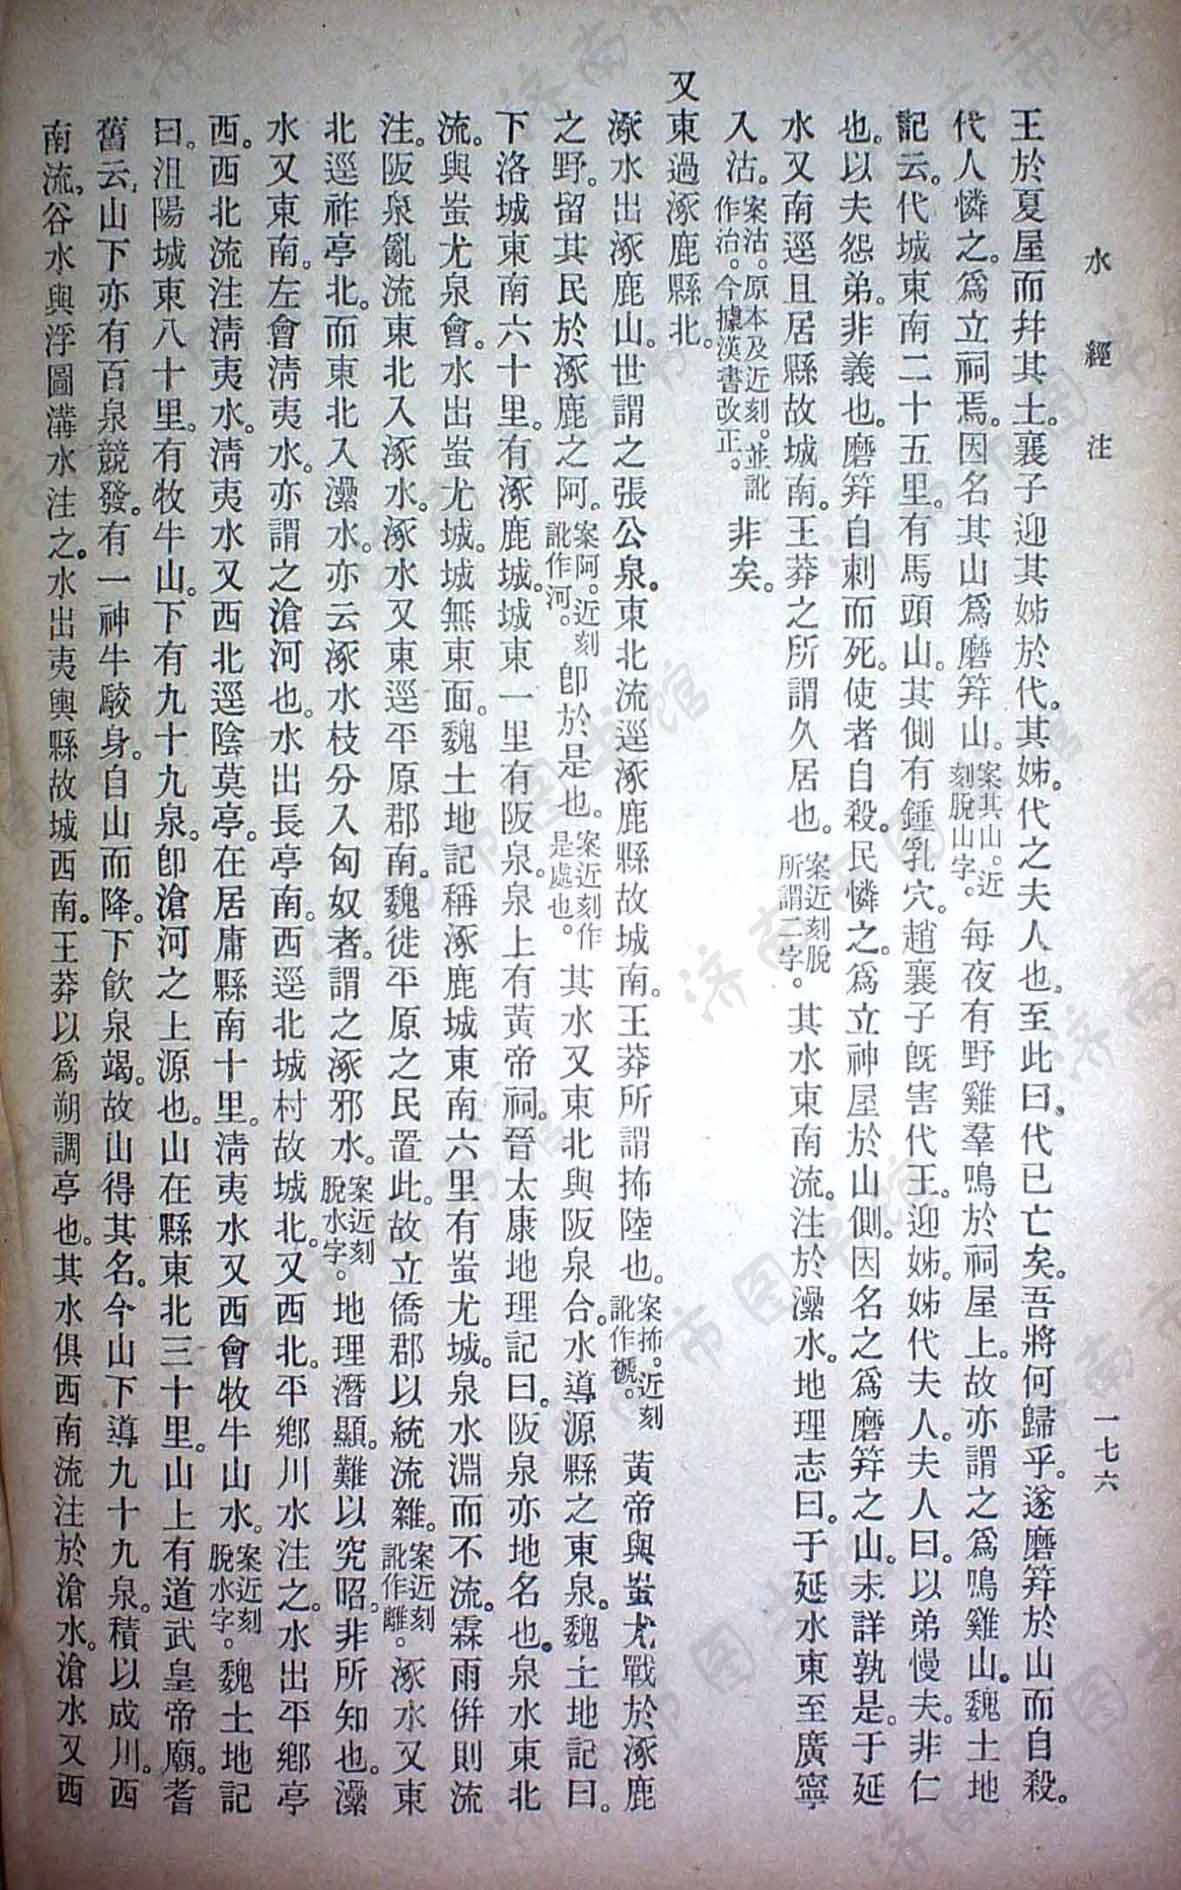 水經注
一七六
王於夏屋而幷其土。襄子迎其姊於代。其姊。代之夫人也。至此曰。代已亡矣。吾將何歸乎。遂磨筓於山而自殺。
代人憐之。爲立祠焉。因名其山爲磨筓山。案其山。近刻脫山字。每夜有野雞羣鳴於祠屋上。故亦謂之爲鳴雞山。魏土地
記云。代城東南二十五里。有馬頭山。其側有鍾乳穴。趙襄子旣害代王。迎姊。姊代夫人。夫人曰。以弟慢夫。非仁
也。以夫怨弟。非義也。磨筓自刺而死。使者自殺。民憐之。爲立神屋於山側。因名之爲磨筓之山。未詳孰是。于延
水又南逕且居縣故城南。王莽之所謂久居也。案近刻脫所謂二字。其水東南流。注於㶟水。地理志曰。于延水東至廣寧
入沽。案沽。原本及近刻。並訛作治。今據漢書改正。非矣。
又東過涿鹿縣北。
涿水出涿鹿山。世謂之張公泉。東北流逕涿鹿縣故城南。王莽所謂抪陸也。案抪。近刻訛作褫。黃帝與蚩尤戰於涿鹿
之野。留其民於涿鹿之阿。案阿。近刻訛作河。卽於是也。案近刻作是處也。其水又東北與阪泉合。水導源縣之東泉。魏土地記曰。
下洛城東南六十里。有涿鹿城。城東一里有阪泉。泉上有黃帝祠。晉太康地理記曰。阪泉亦地名也。泉水東北
流。與蚩尤泉會。水出蚩尤城。城無東面。魏土地記稱涿鹿城東南六里有蚩尤城。泉水淵而不流。霖雨倂則流
注。阪泉亂流東北入涿水。涿水又東逕平原郡南。魏徙平原之民置此。故立僑郡以統流雜。案近刻訛作離。涿水又東
北逕祚亭北。而東北入㶟水。亦云涿水枝分入匈奴者。謂之涿邪水。案近刻脫水字。地理潛顯。難以究昭。非所知也。㶟
水又東南。左會淸夷水。亦謂之滄河也。水出長亭南。西逕北城村故城北。又西北。平鄉川水注之。水出平鄉亭
西。西北流注淸夷水。淸夷水又西北逕陰莫亭。在居庸縣南十里。淸夷水又西會牧牛山水。案近刻脫水字。魏土地記
曰。沮陽城東八十里。有牧牛山。下有九十九泉。卽滄河之上源也。山在縣東北三十里。山上有道武皇帝廟。耆
舊云。山下亦有百泉競發。有一神牛駮身。自山而降。下飮泉竭。故山得其名。今山下導九十九泉。積以成川。西
南流。谷水與浮圖溝水注之。水出夷輿縣故城西南。王莽以爲朔調亭也。其水俱西南流注於滄水。滄水又西